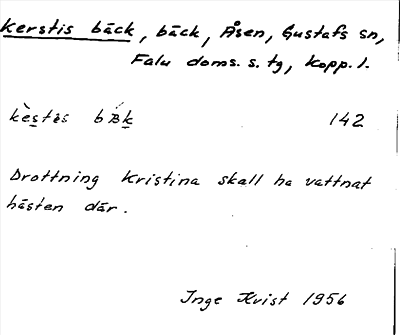 Kerstis bäck, bäck, Åsen, Gustafs sn,
Falu doms. s. tg, Kopp. l.
142
Drottning Kristina skall ha vattnat
hästen där.
Inge Kvist 1956